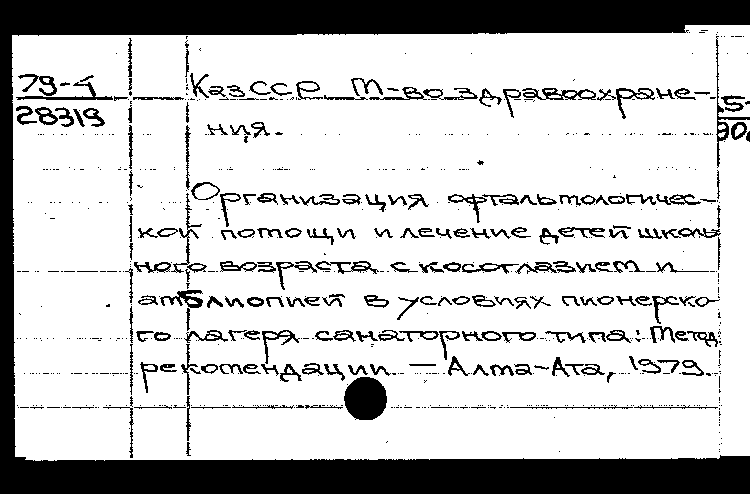 79-4
28319
КазССР. М-во здравоохране-
ния.
Организация офтальмологичес-
кой помощи и лечение детей школь
ного возраста с косоглазием и
амблиопией в условиях пионерско-
го лагеря санаторного типа: Метод
рекомендации. — Алма-Ата, 1979.